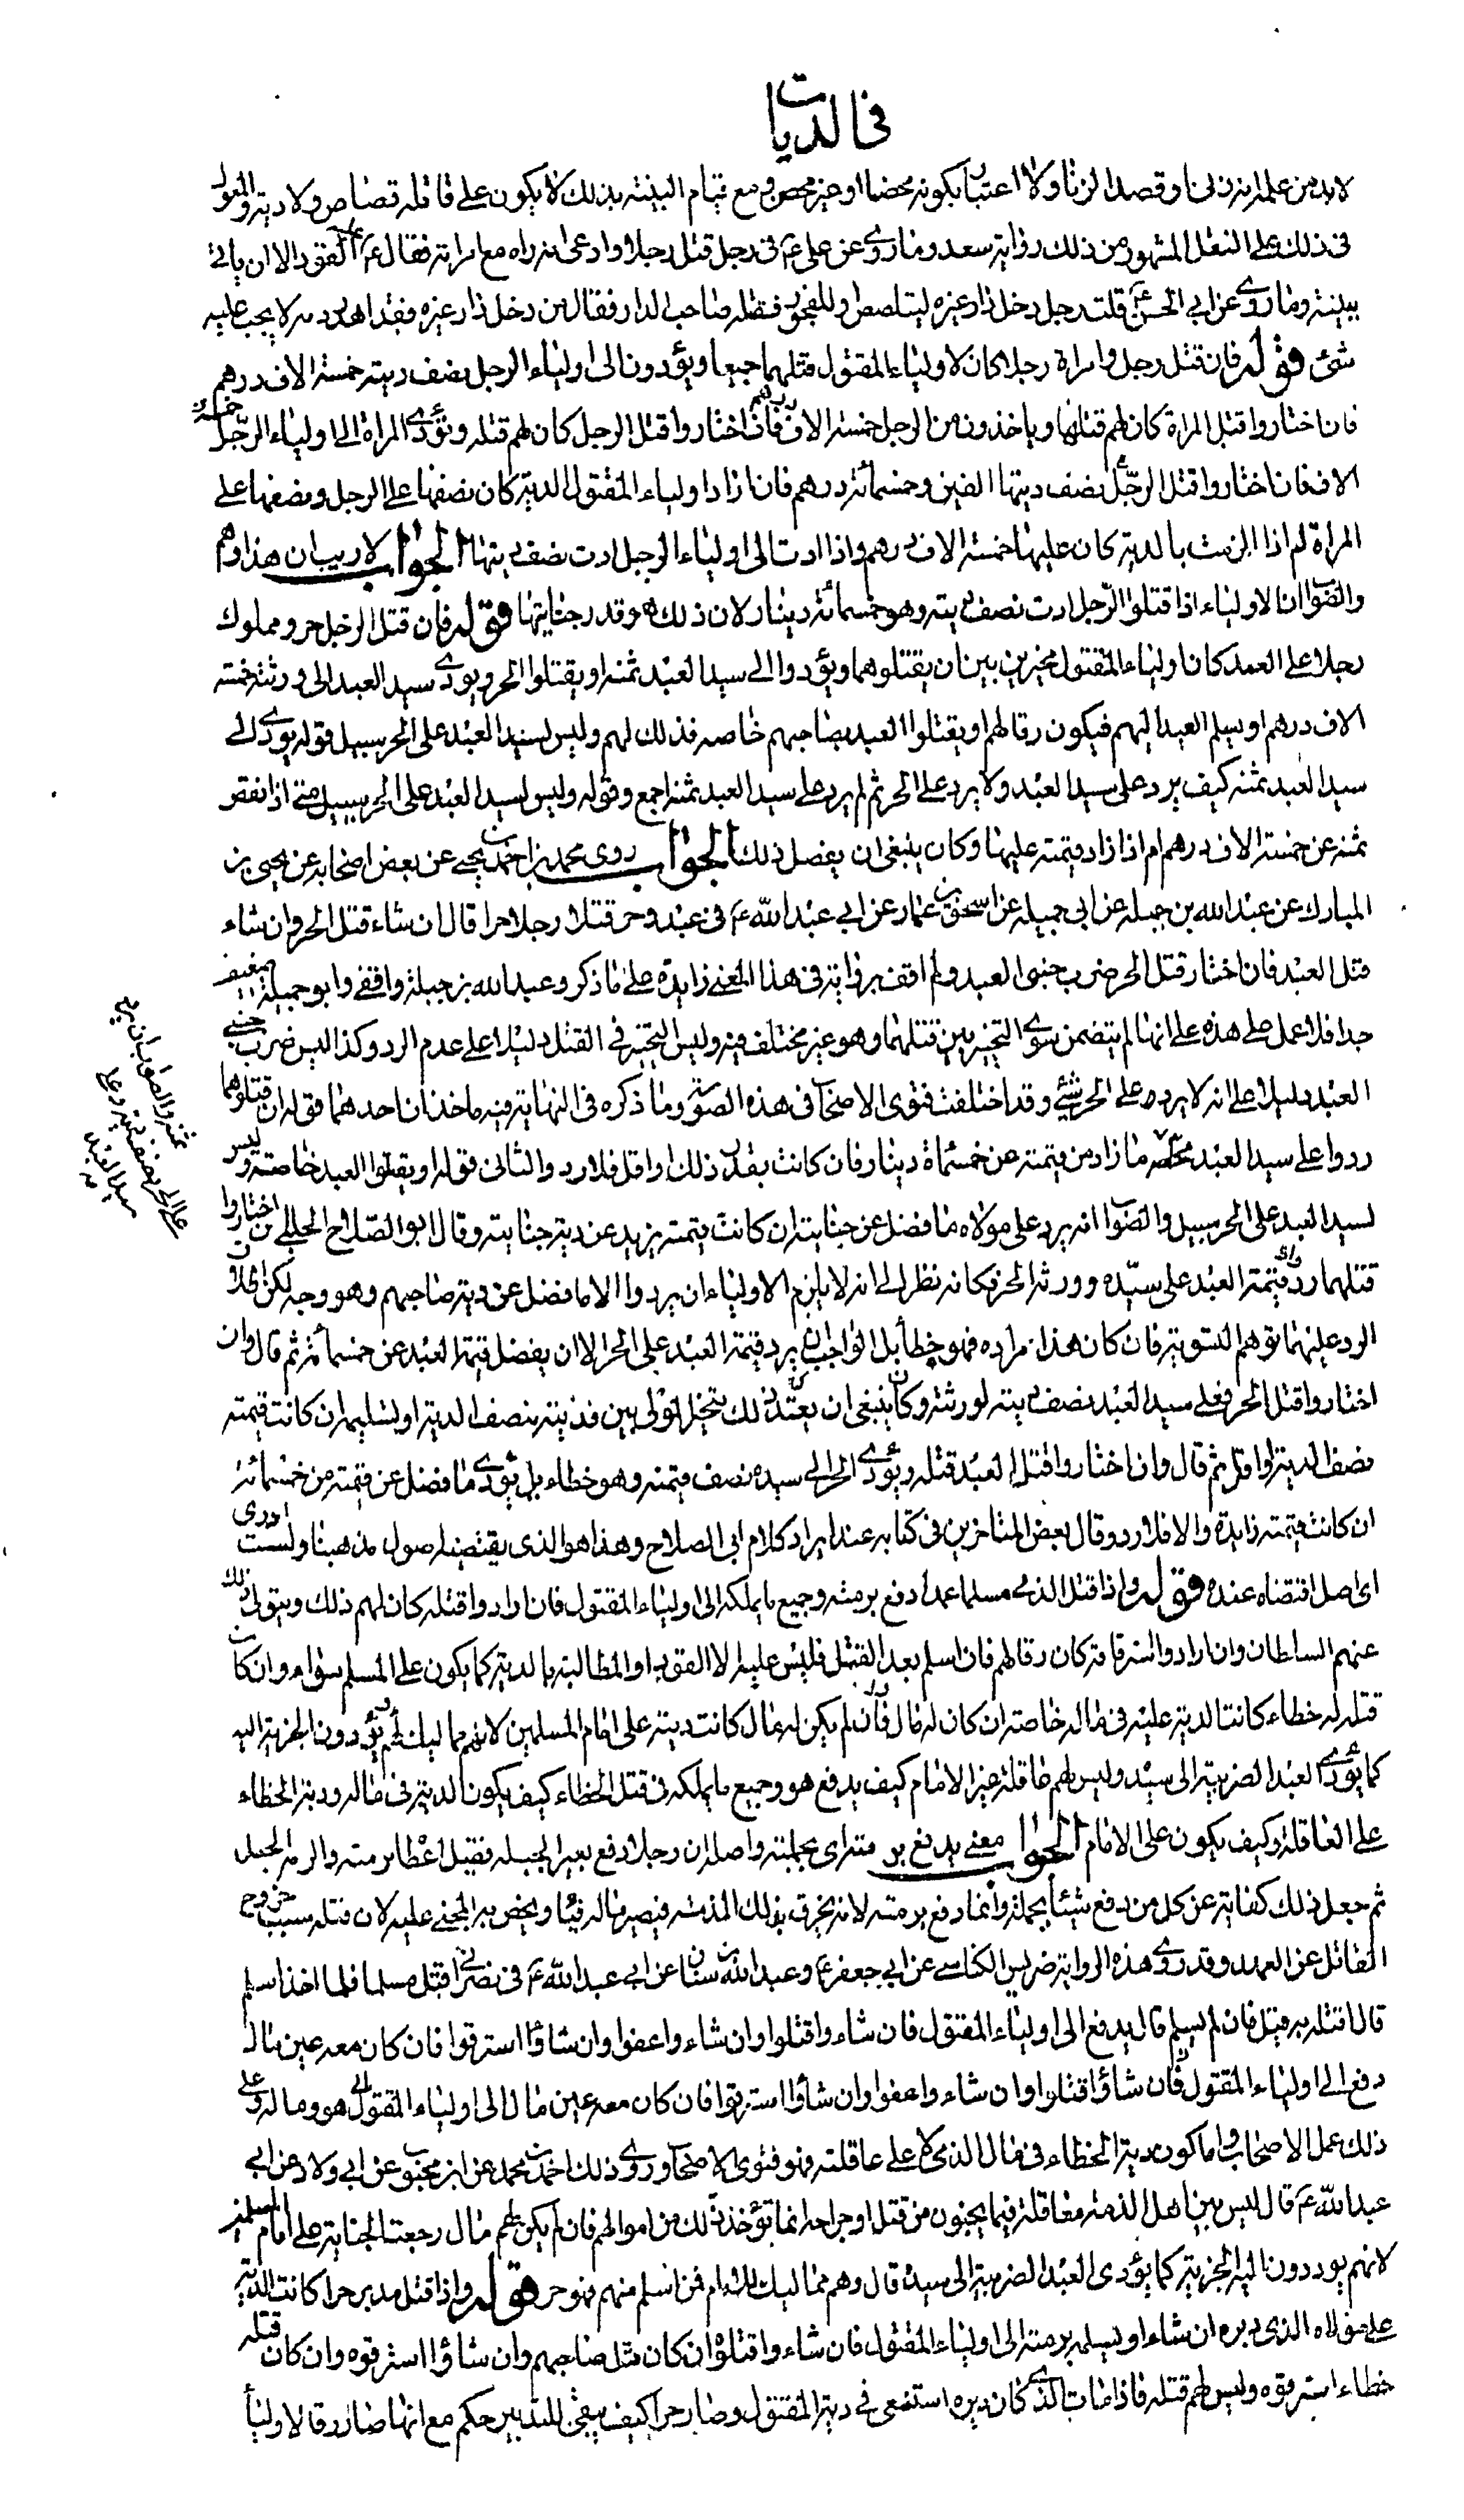 في الديات
لابد من علمه انه زنى او قصد الزنا ولا اعتبار بكونه محصنا او غير محصن ومع قيام البينة بذلك لا يكون على قاتله قصاص ولا دية والمعول
في ذلك على النقل المشهور من ذلك رواية سعد وما روي عن علي ع في رجل قتل رجلا وادعى انه راه مع امراته فقال ع عليه القود الا ان ياتي
ببينة وما روي عن ابي الحسن ع قلت رجل دخل دار غيره ليتلصص او للفجور فقتله صاحب الدار فقال من دخل دار غيره فقد اهدر دمه لا يجب عليه
شئ قوله فان قتل رجل وامراة رجلا كان لاولياء المقتول قتلهما جميعا ويؤدون الى اولياء الرجل نصف ديته خمسة الاف درهم
فان اختاروا قتل المراة كان لهم قتلها وياخذون من الرجل خمسة الاف درهم فان اختاروا قتل الرجل كان لهم قتله وتؤدي المراة الى اولياء الرجل خمسة
الاف فان اختاروا قتل الرجل نصف ديتها الفين وخمسمائة درهم فان اراد اولياء المقتول الدية كان نصفها على الرجل ونصفها على
المراة لم اذا الزمت بالدية كان عليها خمسة الاف درهم واذا ادت الى اولياء الرجل ادت نصف ديتها الجواب لا ريب ان هذا وهم
والصواب ان الاولياء اذا قتلوا الرجل ادت نصف ديته وهو خمسمائة دينار لان ذلك هو قدر جنايتها قوله فان قتل الرجل حر ومملوك
رجلا على العمد كان اولياء المقتول مخيرين بين ان يقتلوهما ويؤدوا الى سيد العبد ثمنه او يقتلوا الحر ويؤدي سيد العبد الى ورثته خمسة
الاف درهم او يسلم العبد اليهم فيكون رقا لهم او يقتلوا العبد بصاحبهم خاصة فذلك لهم وليس لسيد العبد على الحر سبيل قوله يؤدي الى
سيد العبد ثمنه كيف يرد على سيد العبد ولا يرد على الحر ثم لم يرد على سيد العبد ثمنه اجمع وقوله وليس لسيد العبد على الحر سبيل متى اذا نقص
ثمنه عن خمسة الاف درهم ام اذا زاد قيمته عليها وكان ينبغي ان يفصل ذلك الجواب روى محمد بن احمد بن يحيى عن بعض اصحابه عن يحيى بن
المبارك عن عبد الله بن جبلة عن ابي جميلة عن اسحق بن عمار عن ابي عبد الله ع في عبد وحر قتلا رجلا حرا قال ان شاء قتل الحر وان شاء
قتل العبد فان اختار قتل الحر ضرب جنبي العبد ولم اقف برواية في هذا المعنى زايدة على ما ذكر وعبد الله بن جبلة واقفي وابو جميلة ضعيف
جدا فلا عمل على هذه على انها لم يتضمن سوى التخيير بين قتلهما وهو غير مختلف فيه وليس التخيير في القتل دليلا على عدم الرد وكذا ليس ضرب جنبي
العبد دليلا على انه لا يرد على الحر شئ وقد اختلفت فتوى الاصحاب في هذه الصورة وما ذكره في النهاية فيه ماخذان احدهما قوله ان قتلوهما
ردوا على سيد العبد ما زاد من قيمته عن خمسمائة دينار فان كانت بقدر ذلك او اقل فلا رد والثاني قوله او يقتلوا العبد خاصة وليس
لسيد العبد على الحر سبيل والصواب انه يرد على مولاه ما فضل عن جنايته ان كانت قيمته يزيد عن دية جنايته وقال ابو الصلاح الحلبي ان اختاروا
قتلهما رد قيمة العبد على سيده وورثة الحر فكانه نظر الى انه لا يلزم الاولياء ان يردوا الا ما فضل عن دية صاحبهم وهو وجه لكن اطلاق
الرد عليهما توهم التسوية فان كان هذا مراده فهو خطأ بل الواجب ان يرد قيمة العبد على الحر الا ان يفضل قيمة العبد عن خمسمائة ثم قال وان
اختاروا قتل الحر فعلى سيد العبد نصف ديته لورثته وكان ينبغي ان يقيد ذلك بتخير المولى بين فديته بنصف الدية او تسليمه ان كانت قيمته
نصف الدية او اقل ثم قال وان اختاروا قتل العبد قتله ويؤدي الحر الى سيده نصف قيمته وهو خطاء بل يؤدي ما فضل عن قيمته من خمسمائة
ان كانت قيمته زايدة والا فلا رد وقال بعض المتاخرين في كتابه عند ايراد كلام ابي الصلاح وهذا هو الذي يقتضيه اصول مذهبنا ولست ادري
اي اصل اقتضاه عنده قوله واذا قتل الذمي مسلما عمدا دفع برمته وجميع ما يملكه الى اولياء المقتول فان ارادوا قتله كان لهم ذلك ويتولى ذلك
عنهم السلطان وان ارادوا استرقاقه كان رقا لهم فان اسلم بعد القتل فليس عليه الا القود او المطالبة بالدية كما يكون على المسلم سواء وان كان
قتله له خطاء كانت الدية عليه في ماله خاصة ان كان له مال فان لم يكن له مال كانت ديته على امام المسلمين لانهم مماليك له يؤدون الجزية اليه
كما يؤدي العبد الضريبة الى سيده وليس لهم عاقلة غير الامام كيف يدفع هو وجميع ما يملكه في قتل الخطاء كيف يكون الدية في ماله ودية الخطاء
على العاقلة وكيف يكون على الامام الجواب معنى يدفع برمته اي بجملته واصله ان رجلا دفع بعيرا بحبله فقيل اعطا برمته والرمة الحبل
ثم جعل ذلك كفاية عن كل من دفع شيئا بجملته وانما دفع برمته لانه يخرق بذلك الذمة فيصير ماله فيئا ويختص به المجني عليه لان قتله سبب خروج
القاتل عن العهد وقد روى هذه الرواية ضريس الكناسي عن ابي جعفر ع وعبد الله بن سنان عن ابي عبد الله ع في نصراني قتل مسلما فلما اخذ اسلم
قال اقتله به قيل فان لم يسلم قال يدفع الى اولياء المقتول فان شاءوا قتلوا وان شاءوا عفوا وان شاؤا استرقوا فان كان معه عين مال
دفع الى اولياء المقتول فان شاؤا قتلوا وان شاءوا عفوا وان شاؤا استرقوا فان كان معه عين مال الى اولياء المقتول هو وماله وعلى
ذلك عمل الاصحاب واما كون دية الخطاء في مال الذمي لا على عاقلته فهو فتوى الاصحاب وروى ذلك احمد بن محمد عن ابن محبوب عن ابي ولاد عن ابي
عبد الله ع قال ليس بين اهل الذمة معاقلة فيما يجنون من قتل او جراحة انما تؤخذ ذلك من اموالهم فان لم يكن لهم مال رجعت الجناية على امام المسلمين
لانهم يوددون اليه الجزية كما يؤدي العبد الضريبة الى سيده قال وهم مماليك للامام فمن اسلم منهم فهو حر قوله واذا قتل مدبر حرا كانت الدية
على مولاه الذي دبره ان شاء او يسلمه برمته الى اولياء المقتول فان شاءوا قتلوه ان كان قتل صاحبهم وان شاؤا استرقوه وان كان قتله
خطاء استرقوه وليس لهم قتله فاذا مات الذي كان دبره استسعى في دية المقتول وصار حرا كيف يبقى للتدبير حكم مع انها صار رقا لاوليا